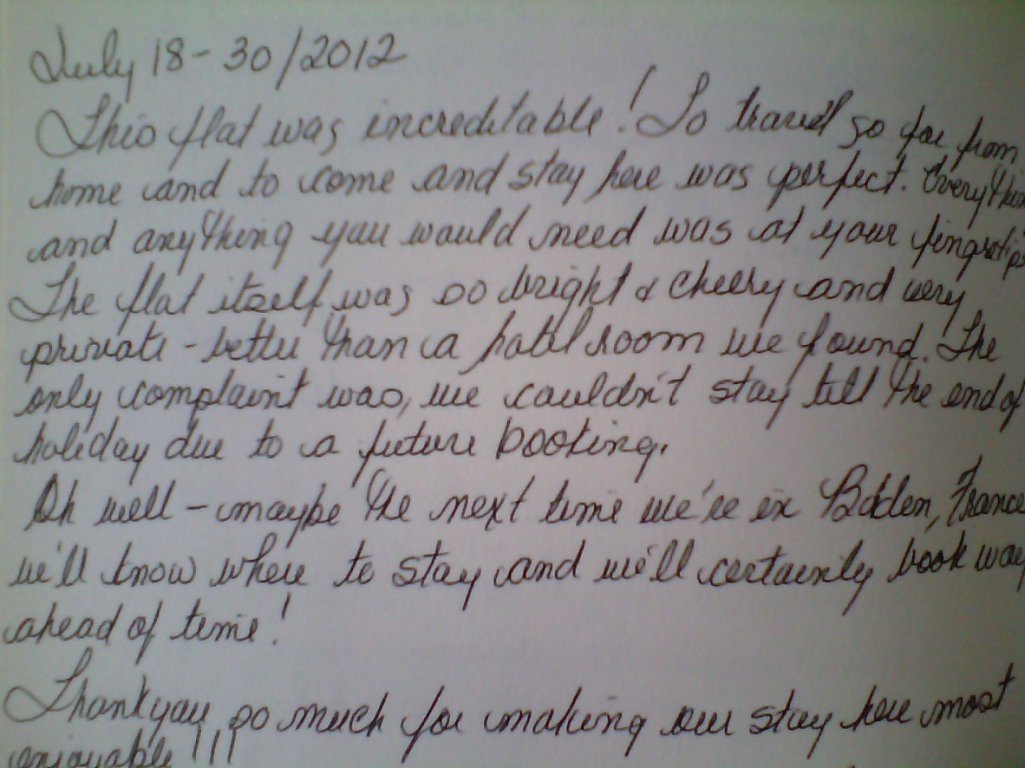 July 18-30/2012
This flat was increditable! To travel so far from
home and to come and stay here was perfect. Everythin
and anything you would need was at your fingertips
The flat itself was so bright & cheery and very
private - better than a hotel room we found. The
only complaint was, we couldn't stay till the end of
holiday due to a future booking.
Oh well - maybe the next time we're in France
we'll know where to stay and we'll certainly book way
ahead of time!
Thankyou so much for making our stay here most
enjoyable!!!